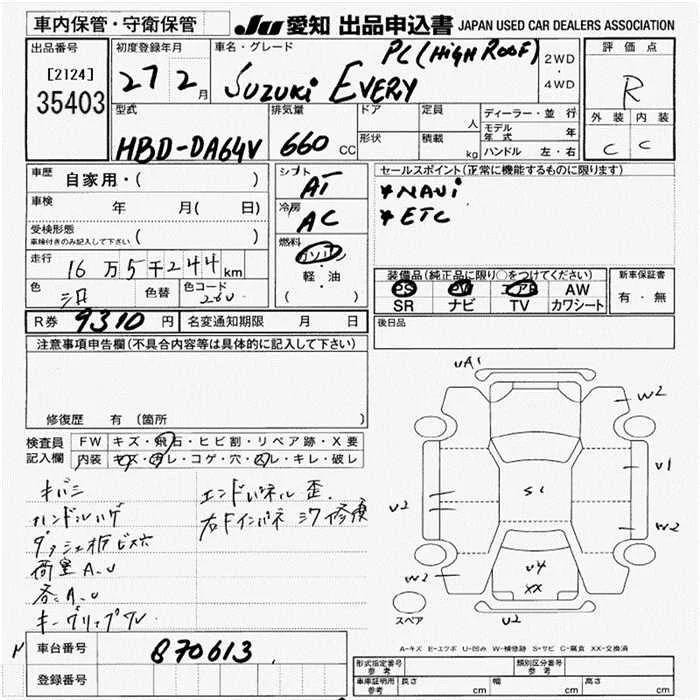 車内保管・守衛保管
JU 愛知 出品申込書 JAPAN USED CAR DEALERS ASSOCIATION
出品番号
[2124]
35403
初度登録年月
27 2月
車名・グレード
PC (HIGH ROOF)
SUZUKI EVERY
2WD
・
4WD
評価点
R
外装 内装
C C
型式
HBD-DA64V
排気量
660 CC
ドア
形状
定員
人
積載
kg
ディーラー・並行
モデル年式 年
ハンドル 左・右
車歴 自家用・( )
車検 年 月( 日)
受検形態
車検付きのみ記入して下さい ( )
走行 16万5千244km
色
色替
色コード
26U
シフト
AT
冷房
AC
燃料
ガソリン
軽・油
( )
セールスポイント(正常に機能するものに限ります)
*NAVi
*ETC
装備品(純正品に限り○をつけてください)
PS PW エアB AW
SR ナビ TV カワシート
新車保証書
有・無
R券 9310円 名変通知期限 月 日
後日品
注意事項申告欄(不具合内容等は具体的に記入して下さい)
修復歴 有 (箇所 )
検査員
記入欄
FW キズ・飛石・ヒビ割・リペア跡・X要
内装 キズ・汚レ・コゲ・穴・スレ・キレ・破レ
キバミ
ハンドルハゲ
ダッシュ板ビス穴
荷室A.U
各A.U
エンドパネル歪
右Fインパネ
修復
UA1
W2
U1
U2
S1
W2
W2
U4
XX
U2
スペア
A-キズ E-エクボ U-凹み W-補修跡 S-サビ C-腐食 XX-交換済
車台番号
870613
登録番号
形式指定番号
参考
類別区分番号
参考
車庫証明用
参考
長さ cm 幅 cm 高さ cm